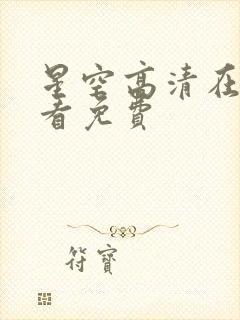 星空高清在
看免費
符寶